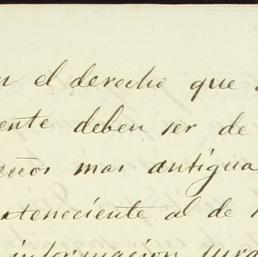 n el derecho que
ente deben ser de
mas antigua
rteneciente al de
informacion jura